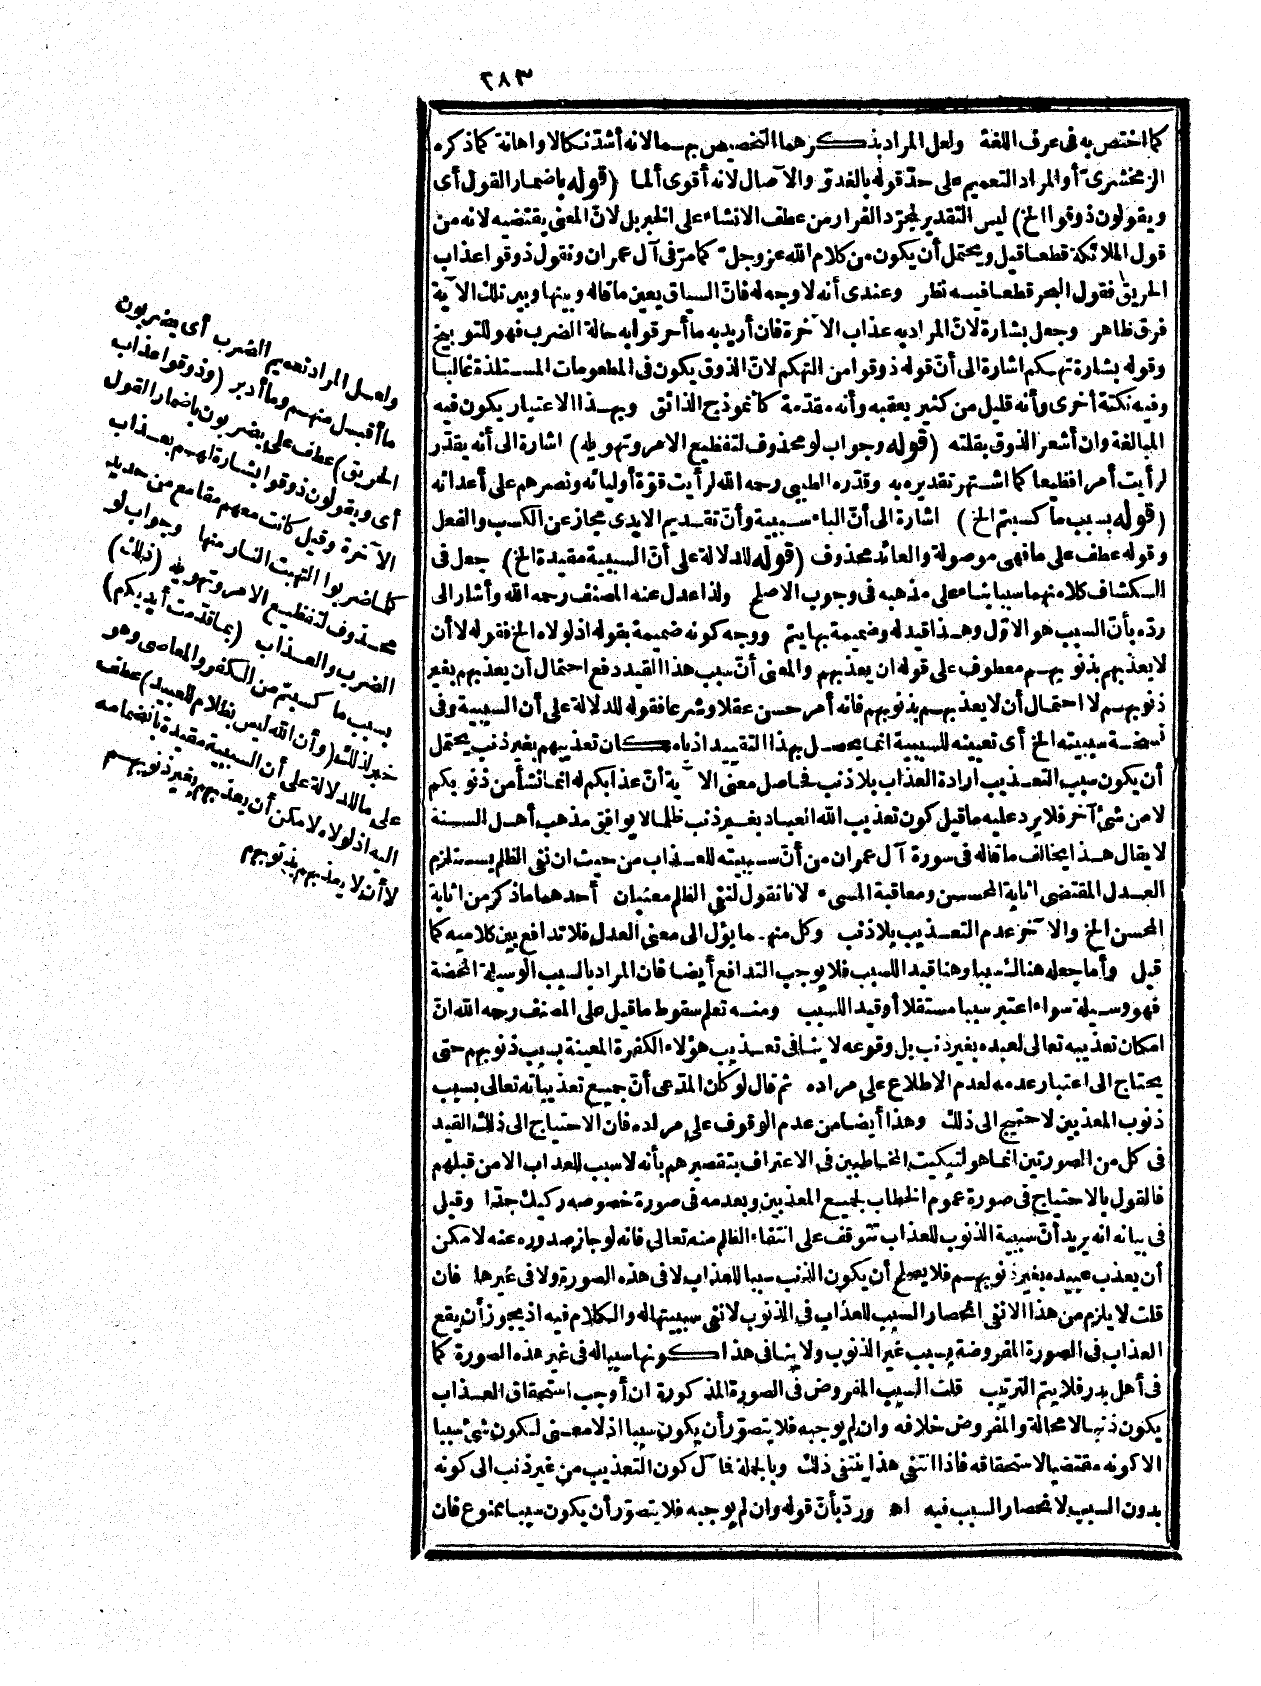 ٢٨٣
كما اختص به فى عرف اللغة ولعل المراد بذكرهما التخصيص بهما لانه أشد نكالا واهانة كما ذكره
الزمخشرى أو المراد التعميم على حد قوله بالغدو والآصال لانه أقوى ألما (قوله باضمار القول أى
ويقولون ذوقوا الخ) ليس التقدير لمجرد الفرار من عطف الانشاء على الخبر بل لان المعنى يقتضيه لانه من
قول الملائكة قطعا قيل ويحتمل أن يكون من كلام الله عز وجل كما مرّ فى آل عمران ونقول ذوقوا عذاب
الحريق فقول البحر قطعا فيه نظر وعندى أنه لا وجه له فانّ السياق يعين ما قاله وبينها وبين تلك الآية
فرق ظاهر وجعل بشارة لانّ المراد به عذاب الآخرة فان أريد به ما أحرقوا به حالة الضرب فهو للتوبيخ
وقوله بشارة تهكم اشارة الى أنّ قوله ذوقوا من التهكم لانّ الذوق يكون فى المطعومات المستلذة غالبا
وفيه نكتة أخرى وأنه قليل من كثير يعقبه وأنه مقدّمة كأنموذج الذائق وبهذا الاعتبار يكون فيه
المبالغة وان أشعر الذوق بقلته (قوله وجواب لو محذوف لتفظيع الامر وتهويله) اشارة الى أنه يقدّر
لرأيت أمرا فظيعا كما اشتهر تقديره به وقدّره الطيبى رحمه الله لرأيت قوّة أوليائه ونصرهم على أعدائه
(قوله بسبب ما كسبتم الخ) اشارة الى أنّ الباء سببية وأنّ تقديم الايدى مجاز عن الكسب والفعل
وقوله عطف على ما فهى موصولة والعائد محذوف (قوله للدلالة على أنّ السببية مقيدة الخ) جعل فى
الكشاف كلا منهما سببا بناء على مذهبه فى وجوب الاصلح ولذا عدل عنه المصنف رحمه الله وأشار الى
ردّه بأنّ السبب هو الاوّل وهذا قيد له وضميمة بها يتم ووجه كونه ضميمة بقوله اذ لولاه الخ فقوله لا أن
لا يعذبهم بذنوبهم معطوف على قوله ان يعذبهم والمعنى أنّ سبب هذا القيد دفع احتمال أن يعذبهم بغير
ذنوبهم لا احتمال أن لا يعذبهم بذنوبهم فانه أمر حسن عقلا وشرعا فقوله للدلالة على أن السببية وفى
نسخة سببيته الخ أى تعيينه للسببية انما يحصل بهذا التقييد اذ بامكان تعذيبهم بغير ذنب يحتمل
أن يكون سبب التعذيب ارادة العذاب بلا ذنب فحاصل معنى الآية أنّ عذابكم له انما نشأ من ذنوبكم
لا من شئ آخر فلا يرد عليه ما قيل كون تعذيب الله العباد بغير ذنب ظلما لا يوافق مذهب أهل السنة
لا يقال هذا يخالف ما قاله فى سورة آل عمران من أنّ سببيته للعذاب من حيث ان نفى الظلم يستلزم
العدل المقتضى اثابة المحسن ومعاقبة المسىء لانا نقول لنفى الظلم معنيان أحدهما ما ذكر من اثابة
المحسن الخ والآخر عدم التعذيب بلا ذنب وكل منهما يؤل الى معنى العدل فلا تدافع بين كلاميه كما
قيل وأما جعله هنالك سببا وهنا قيدا للسبب فلا يوجب التدافع أيضا فان المراد بالسبب الوسيلة المحضة
فهو وسيلة سواء اعتبر سببا مستقلا أو قيدا للسبب ومنه تعلم سقوط ما قيل على المصنف رحمه الله انّ
امكان تعذيبه تعالى لعبده بغير ذنب بل وقوعه لا ينافى تعذيب هؤلاء الكفرة المعينة بسبب ذنوبهم حتى
يحتاج الى اعتبار عدمه لعدم الاطلاع على مراده ثم قال لو كان المدّعى أنّ جميع تعذيباته تعالى بسبب
ذنوب المعذبين لاحتيج الى ذلك وهذا أيضا من عدم الوقوف على مراده فان الاحتياج الى ذلك القيد
فى كل من الصورتين انما هو لتبكيت المخاطبين فى الاعتراف بتقصيرهم بأنه لا سبب للعذاب الا من قبلهم
فالقول بالاحتياج فى صورة عموم الخطاب لجميع المعذبين وبعدمه فى صورة خصوصه ركيك جدّا وقيل
فى بيانه انه يريد أنّ سببية الذنوب للعذاب تتوقف على انتفاء الظلم منه تعالى فانه لو جاز صدوره عنه لامكن
أن يعذب عبيده بغير ذنوبهم فلا يصلح أن يكون الذنب سببا للعذاب لا فى هذه الصورة ولا فى غيرها فان
قلت لا يلزم من هذا الا نفى انحصار السبب للعذاب فى الذنوب لا نفى سببيتها له والكلام فيه اذ يجوز أن يقع
العذاب فى الصورة المفروضة بسبب غير الذنوب ولا ينافى هذا كونها سببا له فى غير هذه الصورة كما
فى أهل بدر فلا يتم الترتيب قلت السبب المفروض فى الصورة المذكورة ان أوجب استحقاق العذاب
يكون ذنبا لا محالة والمفروض خلافه وان لم يوجبه فلا يتصوّر أن يكون سببا اذ لا معنى لكون شئ سببا
الا كونه مقتضيا لاستحقاقه فاذا انتفى هذا ينتفى ذلك وبالجملة فمآل كون التعذيب من غير ذنب الى كونه
بدون السبب لانحصار السبب فيه اه وردّ بأنّ قوله وان لم يوجبه فلا يتصوّر أن يكون سببا ممنوع فان
ولعل المراد تعميم الضرب أى يضربون
ما أقبل منهم وما أدبر (وذوقوا عذاب
الحريق) عطف على يضربون باضمار القول
أى ويقولون ذوقوا بشارة لهم بعذاب
الآخرة وقيل كانت معهم مقامع من حديد
كلما ضربوا التهبت النار منها وجواب لو
محذوف لتفظيع الامر وتهويله (ذلك)
الضرب والعذاب (بما قدمت أيديكم)
بسبب ما كسبتم من الكفر والمعاصى وهو
خبر لذلك (وأن الله ليس بظلام للعبيد) عطف
على ما للدلالة على أن السببية مقيدة بانضمامه
اليه اذ لولاه لامكن أن يعذبهم بغير ذنوبهم
لا أن لا يعذبهم بذنوبهم